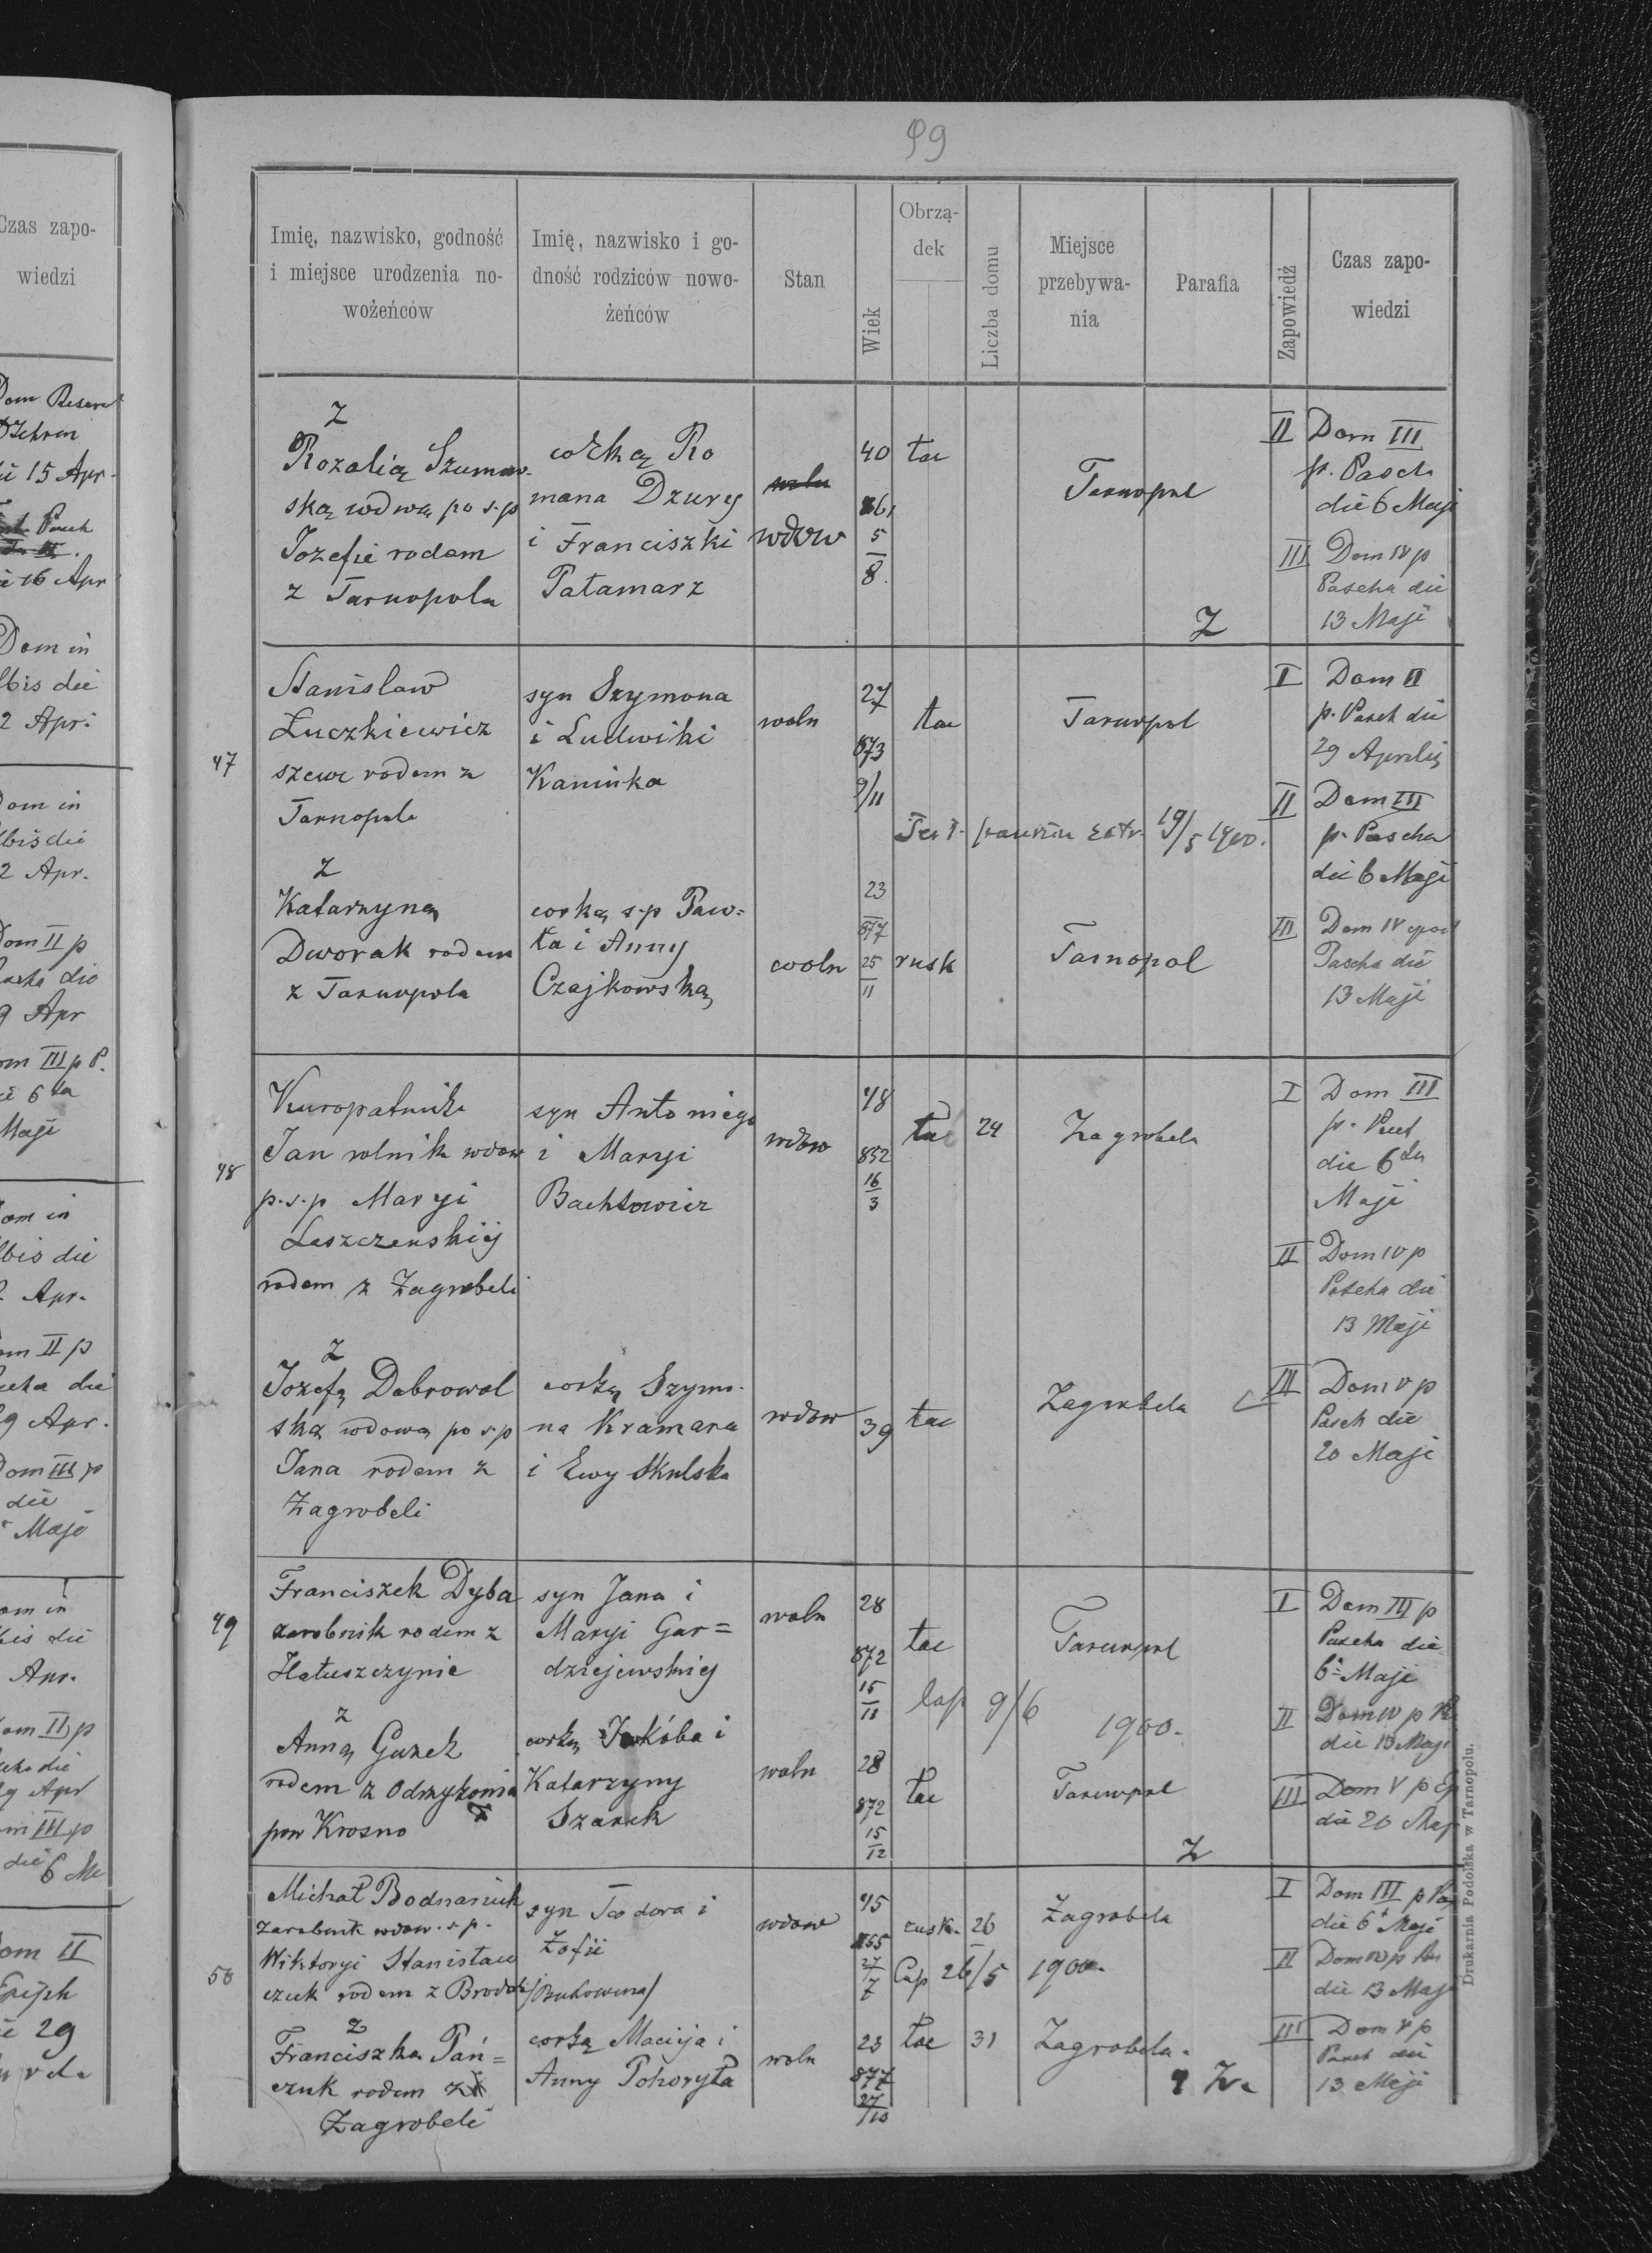 99
Czas zapo-
wiedzi
15 Apr.
16 Apr
Dom in
albis die
2 Apr.
Dom in
albis die
2 Apr.
Dom II p
Pascha die
29 Apr
Dom III p P.
die 6ta
Maji
Dom in
albis die
Apr.
Dom II p
Pascha die
29 Apr.
Dom III p
die
Maji
Dom in
albis die
Apr.
Dom II p
Pascha die
29 Apr
Dom III p
die 6 Ma
Dom II
die 29
Imię, nazwisko, godność
i miejsce urodzenia no-
wożeńców
Imię, nazwisko i go-
dność rodziców nowo-
żeńców
Stan
Wiek
Obrzą-
dek
Liczba domu
Miejsce
przebywa-
nia
Parafia
Zapowiedź
Czas zapo-
wiedzi
z
Rozalią Szumow-
ską wdwą po s.p
Jozefie rodem
z Tarnopola
corką Ro
mana Dzury
i Franciszki
Patamarz
woln
wdow
40
861
5
8.
łac
Tarnopol
Z
II Dom III
p. Pasch
die 6 Maji
III Dom IV p
Pascha die
13 Maji
47
Stanisław
Łuczkiewicz
szewc rodem z
Tarnopola
syn Szymona
i Ludwiki
Kaminka
woln
27
873
9/11
łac
Tarnopol
19/5 1900.
I Dom II
p. Pasch die
29 Aprilis
II Dom III
p. Pascha
die 6 Maji
z
Katarzyną
Dworak rodem
z Tarnopola
corką s.p Paw=
ła i Anny
Czajkowską
woln
23
877
25
11
rusk
Tarnopol
III Dom IV post
Pascha die
13 Maji
48
Kuropatnicki
Jan rolnik wdow
p.s.p Maryi
Leszczenskiej
rodem z Zagrobeli
syn Antoniego
i Maryi
Bachtowicz
wdow
48
852
16
3
łac
24
Zagrobela
I Dom III
p. Pasch
die 6ta
Maji
II Dom IV p
Pascha die
13 Maji
z
Jozefą Dobrowol
ską wdową po s.p
Jana rodem z
Zagrobeli
corką Szymo-
na Kramara
i Ewy Skulska
wdow
39
łac
Zagrobela
III Dom V p
Pasch die
20 Maji
49
Franciszek Dyba
zarobnik rodem z
Hałuszczynie
syn Jana i
Maryi Gar=
dziejewskiej
woln
28
872
15
11
łac
Tarnopol
I Dom III p
Pascha die
6 Maji
Cop 9/6 1900.
z
Anną Guzek
rodem z Odrzykonia
pow Krosno
corką Jakóba i
Katarzyny
Szarek
woln
28
872
15
12
łac
Tarnopol
Z
II Dom IV p
die 13 Maji
III Dom V p
die 20 Maj
50
Michał Bodnaruk
zarobnik wdow. s.p.
Wiktoryi Stanisław
czuk rodem z Brodok
syn Todora i
Zofii
/Bukowina/
wdow
45
855
27
7
rusk. 26
Zagrobela
Cop 26/5 1900.
I Dom III p Pas
die 6 Maji
II Dom IV p
die 13 Maji
z
Franciszka Pań=
czuk rodem z
Zagrobeli
corką Macieja i
Anny Pohoryła
woln
23
877
27/10
łac 31
Zagrobela.
III Dom V p
Pasch die
13 Maji
Drukarnia Podolska w Tarnopolu.